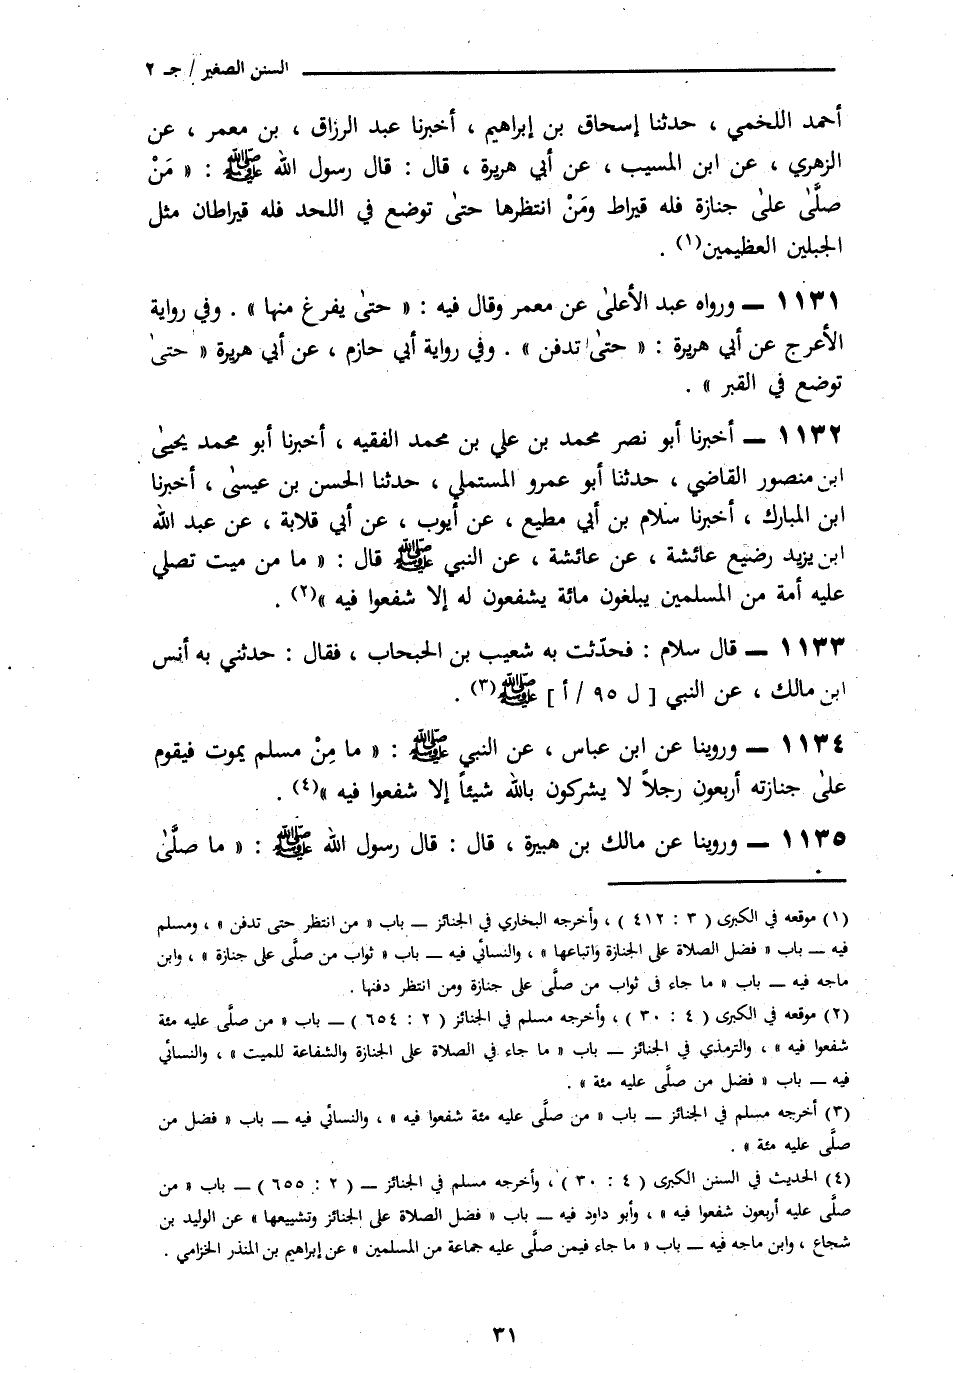 السنن الصغير / جـ ٢
أحمد اللخمي ، حدثنا إسحاق بن إبراهيم ، أخبرنا عبد الرزاق ، بن معمر ، عن
الزهري ، عن ابن المسيب ، عن أبي هريرة ، قال : قال رسول الله ﷺ : « مَنْ
صلَّىٰ علىٰ جنازة فله قيراط ومَنْ انتظرها حتىٰ توضع في اللحد فله قيراطان مثل
الجبلين العظيمين(١) .
١١٣١ ــ ورواه عبد الأعلىٰ عن معمر وقال فيه : « حتىٰ يفرغ منها » . وفي رواية
الأعرج عن أبي هريرة : « حتىٰ تدفن » . وفي رواية أبي حازم ، عن أبي هريرة « حتىٰ
توضع في القبر » .
١١٣٢ ــ أخبرنا أبو نصر محمد بن علي بن محمد الفقيه ، أخبرنا أبو محمد يحيىٰ
ابن منصور القاضي ، حدثنا أبو عمرو المستملي ، حدثنا الحسن بن عيسىٰ ، أخبرنا
ابن المبارك ، أخبرنا سلام بن أبي مطيع ، عن أيوب ، عن أبي قلابة ، عن عبد الله
ابن يزيد رضيع عائشة ، عن عائشة ، عن النبي ﷺ قال : « ما من ميت تصلي
عليه أمة من المسلمين يبلغون مائة يشفعون له إلا شفعوا فيه »(٢) .
١١٣٣ ــ قال سلام : فحدّثت به شعيب بن الحبحاب ، فقال : حدثني به أنس
ابن مالك ، عن النبي [ ل ٩٥ / أ ] ﷺ(٣) .
١١٣٤ ــ وروينا عن ابن عباس ، عن النبي ﷺ : « ما مِنْ مسلم يموت فيقوم
علىٰ جنازته أربعون رجلاً لا يشركون بالله شيئاً إلا شفعوا فيه »(٤) .
١١٣٥ ــ وروينا عن مالك بن هبيرة ، قال : قال رسول الله ﷺ : « ما صلَّىٰ
(١) موقعه في الكبرى ( ٣ : ٤١٢ ) ، وأخرجه البخاري في الجنائز ــ باب « من انتظر حتى تدفن » ، ومسلم
فيه ــ باب « فضل الصلاة على الجنازة واتباعها » ، والنسائي فيه ــ باب « ثواب من صلَّى على جنازة » ، وابن
ماجه فيه ــ باب « ما جاء فى ثواب من صلَّى على جنازة ومن انتظر دفنها .
(٢) موقعه في الكبرى ( ٤ : ٣٠ ) ، وأخرجه مسلم في الجنائز ( ٢ : ٦٥٤ ) ــ باب « من صلَّى عليه مئة
شفعوا فيه » ، والترمذي في الجنائز ــ باب « ما جاء في الصلاة على الجنازة والشفاعة للميت » ، والنسائي
فيه ــ باب « فضل من صلَّى عليه مئة » .
(٣) أخرجه مسلم في الجنائز ــ باب « من صلَّى عليه مئة شفعوا فيه » ، والنسائي فيه ــ باب « فضل من
صلَّى عليه مئة » .
(٤) الحديث في السنن الكبرى ( ٤ : ٣٠ ) ، وأخرجه مسلم في الجنائز ــ ( ٢ : ٦٥٥ ) ــ باب « من
صلَّى عليه أربعون شفعوا فيه » ، وأبو داود فيه ــ باب « فضل الصلاة على الجنائز وتشييعها » عن الوليد بن
شجاع ، وابن ماجه فيه ــ باب « ما جاء فيمن صلَّى عليه جماعة من المسلمين » عن إبراهيم بن المنذر الخزامي .
٣١